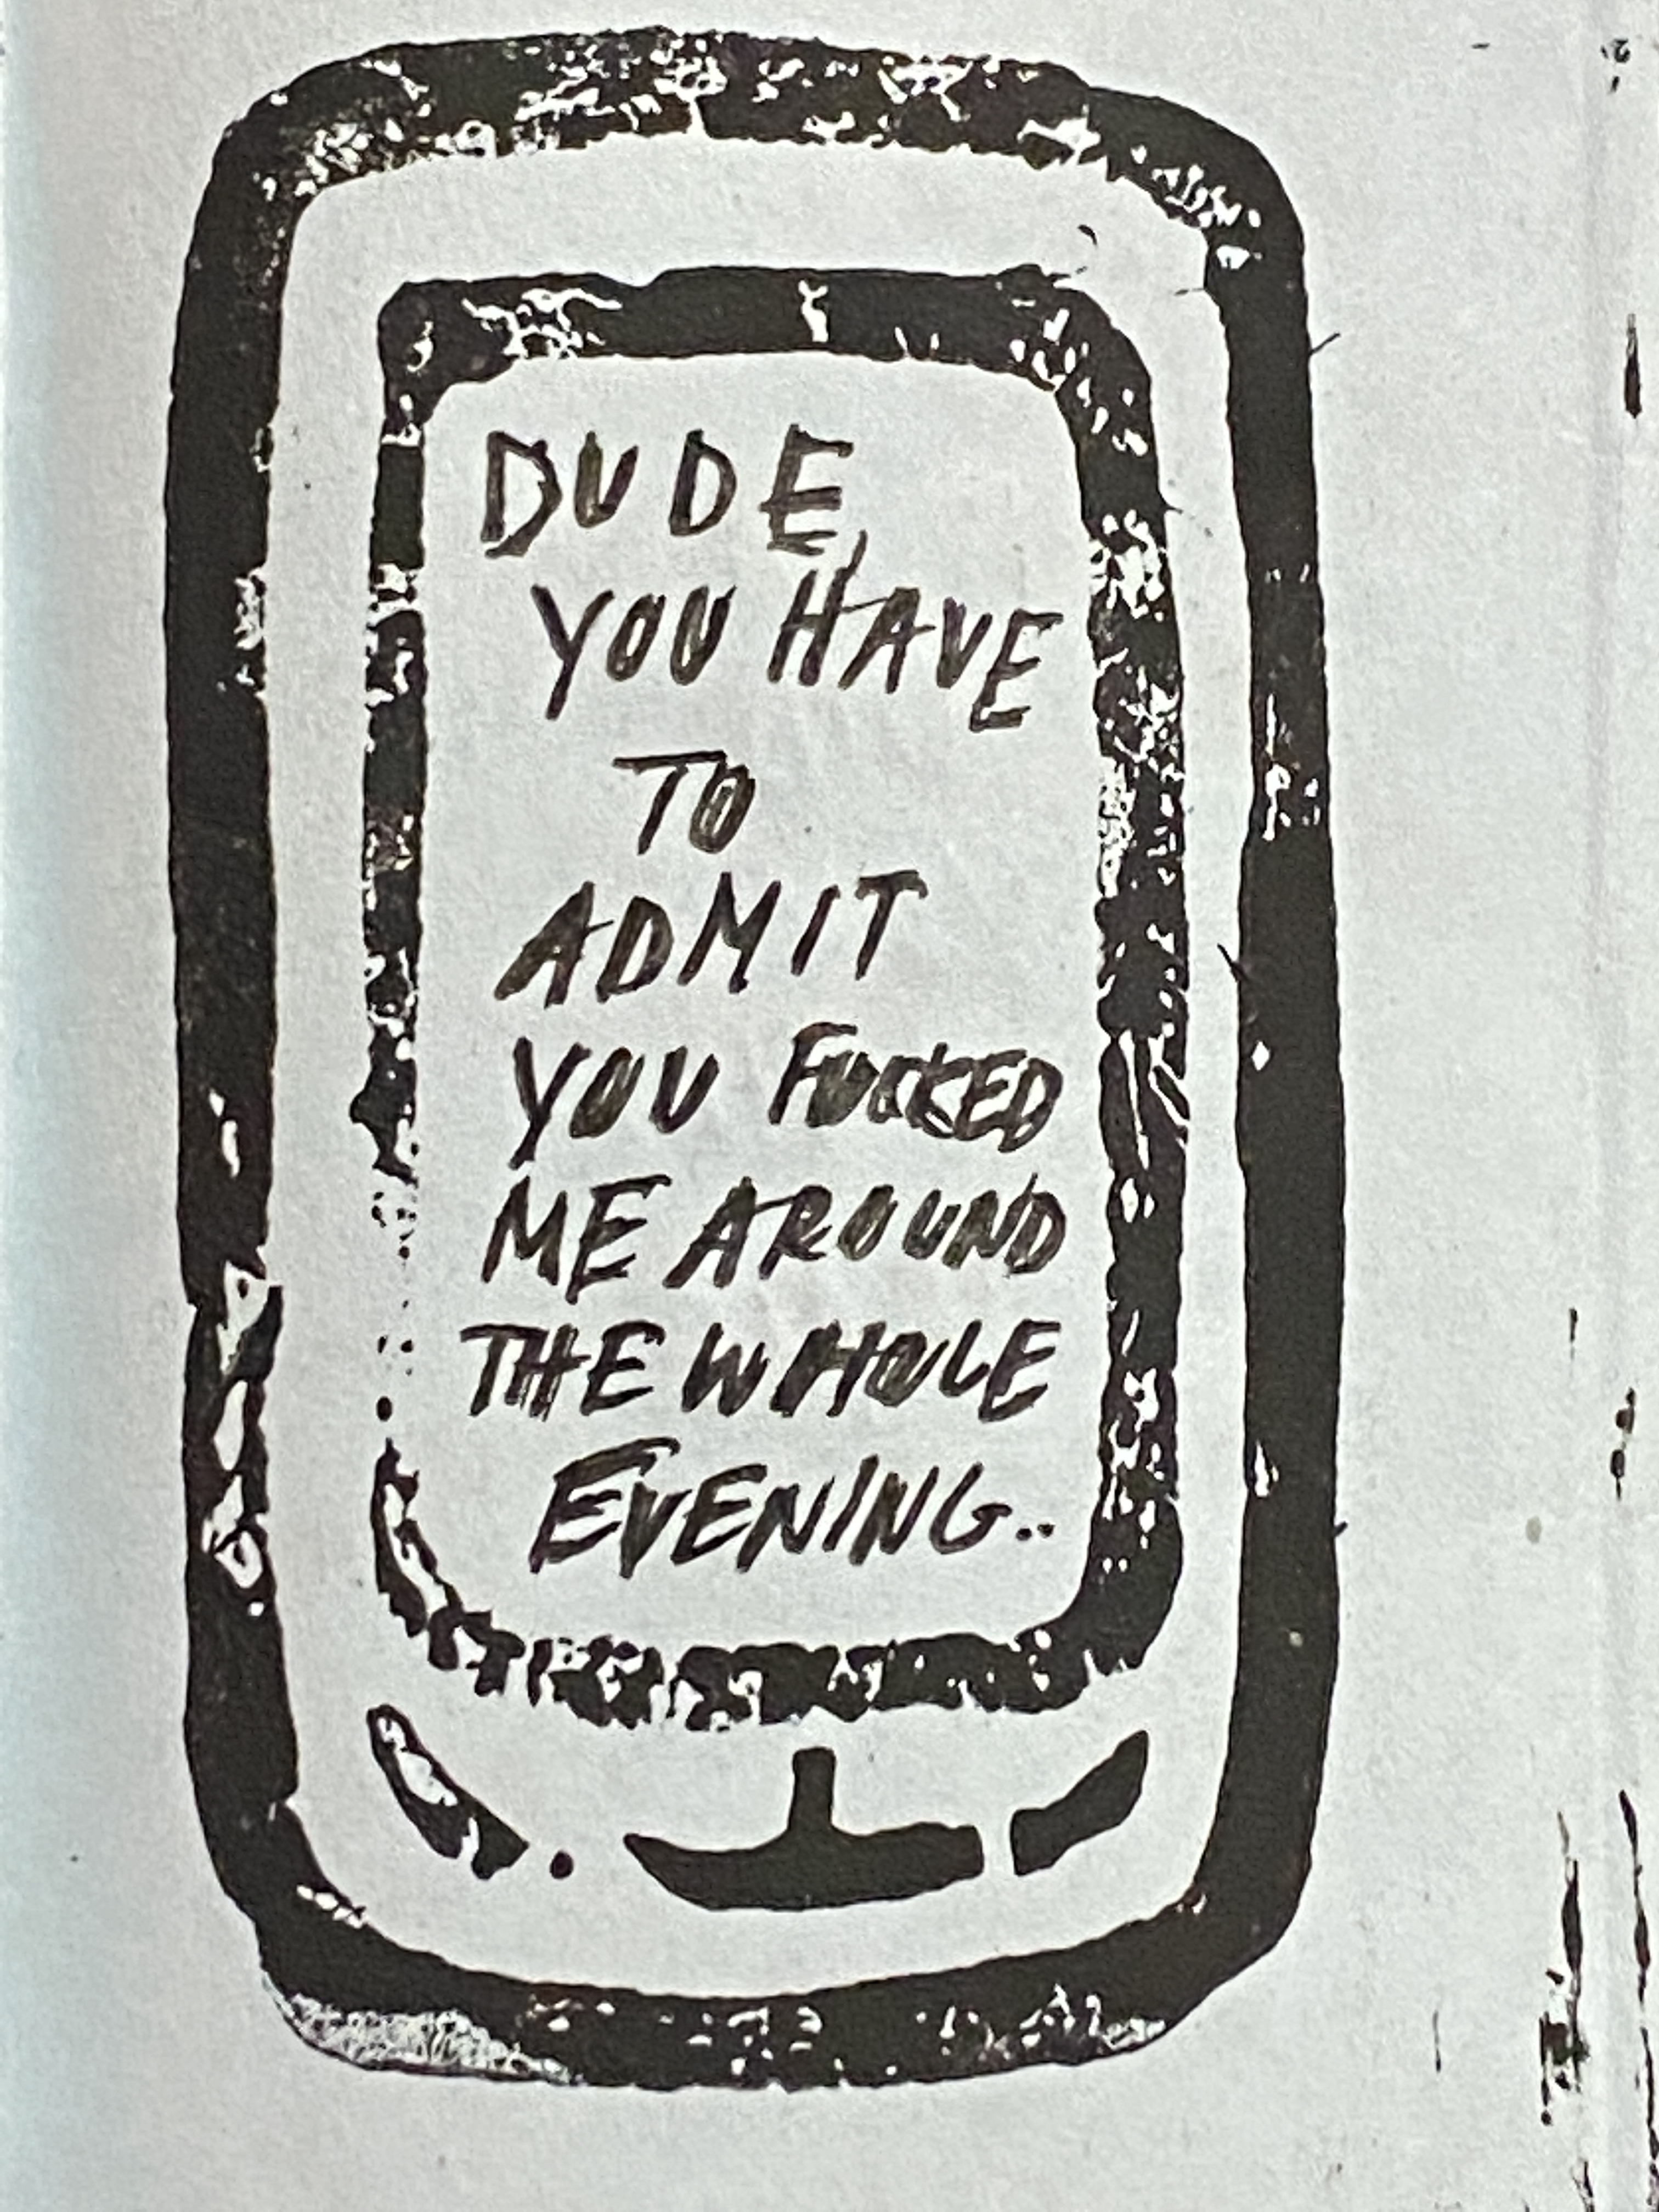 DUDE,
YOU HAVE
TO
ADMIT
YOU FUCKED
ME AROUND
THE WHOLE
EVENING..